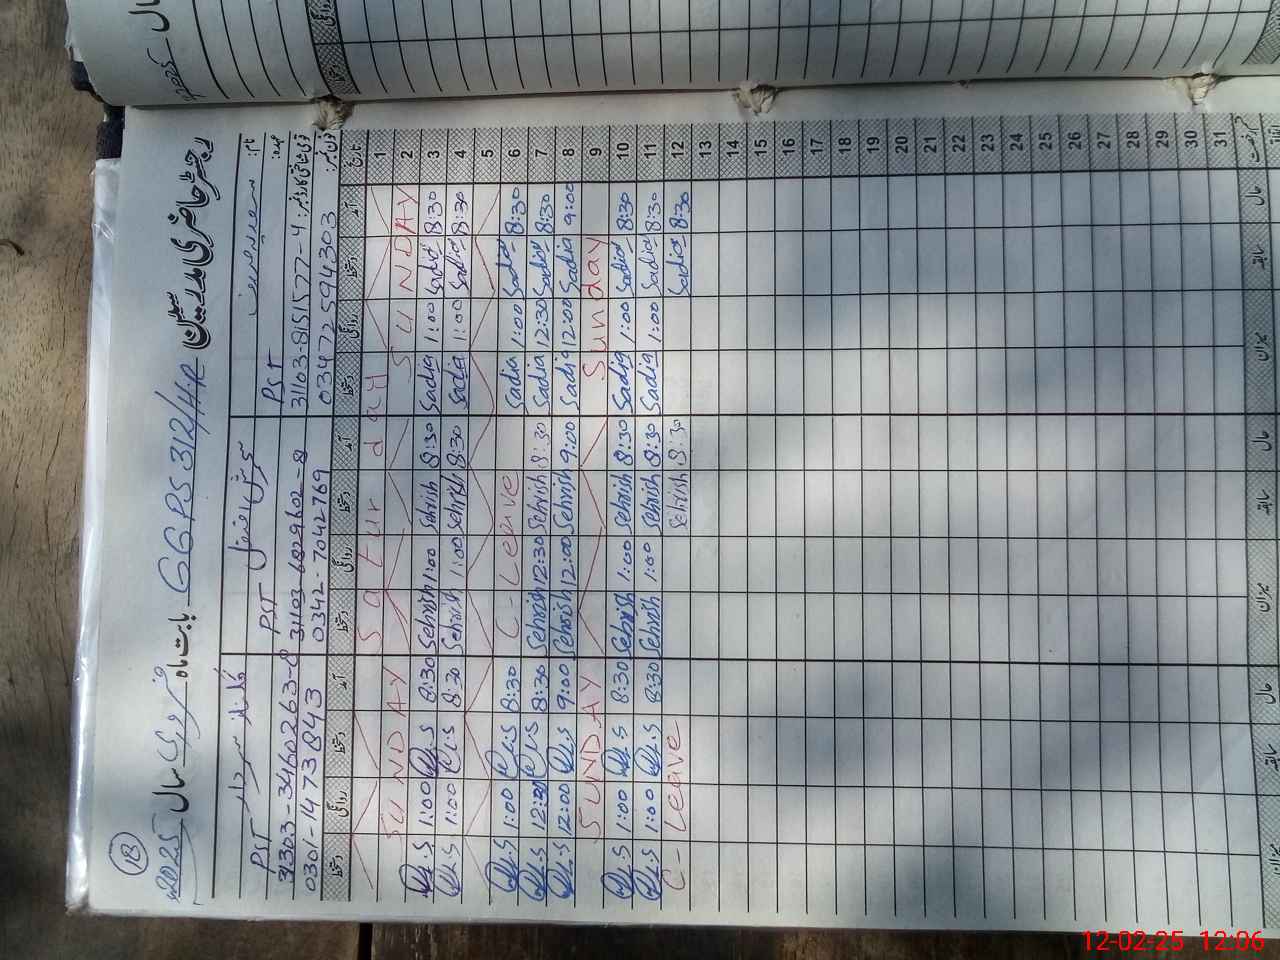 رجسٹر حاضری مدرسین GGPS 312/HR بابت ماہ فروری سال 2025
18
نام: سعدیہ
سحرش افضل
سردار
عہدہ: PST
PST
PST
قومی شناختی کارڈ نمبر: 31103-8151577-4
31103-6829602-8
31303-3460263-8
فون نمبر: 03472594303
0342-7042769
0301-1473843
تاریخ آمد دستخط روانگی دستخط آمد دستخط روانگی دستخط آمد دستخط روانگی دستخط
1 Saturday
2 SUNDAY SUNDAY
3 8:30 Sadia 1:00 Sadia 8:30 Sehrish 1:00 Sehrish 8:30 1:00
4 8:30 Sadia 1:00 Sadia 8:30 Sehrish 1:00 Sehrish 8:30 1:00
5
6 8:30 Sadia 1:00 Sadia C-Leave 8:30 1:00
7 8:30 Sadia 12:30 Sadia 8:30 Sehrish 12:30 Sehrish 8:30 12:30
8 9:00 Sadia 12:00 Sadia 9:00 Sehrish 12:00 Sehrish 9:00 12:00
9 Sunday SUNDAY
10 8:30 Sadia 1:00 Sadia 8:30 Sehrish 1:00 Sehrish 8:30 1:00
11 8:30 Sadia 1:00 Sadia 8:30 Sehrish 1:00 Sehrish 8:30 1:00
12 8:30 Sadia 8:30 Sehrish C-Leave
13
14
15
16
17
18
19
20
21
22
23
24
25
26
27
28
29
30
31
حال سابقہ میزان حال سابقہ میزان حال سابقہ میزان
12-02-25 12:06